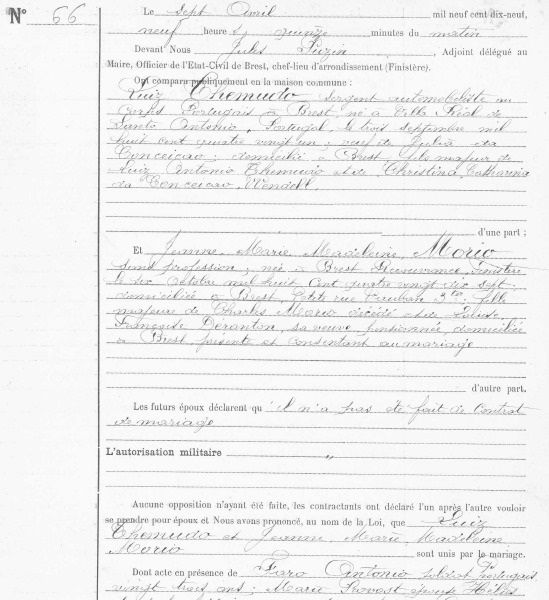 N° 66
Le sept Avril mil neuf cent dix-neuf,
neuf heures quinze minutes du matin
Devant Nous Jules Puzin, Adjoint délégué au
Maire, Officier de l'Etat-Civil de Brest, chef-lieu d'arrondissement (Finistère).
Ont comparu publiquement en la maison commune :
Luiz Themudo Sergent automobiliste au
Corps Portugais à Brest, né à Villa Réal de
Santo Antonio, Portugal, le trois septembre mil
huit cent quatre vingt un ; veuf de Julia da
Conceicao ; domicilié à Brest, fils majeur de
Luiz Antonio Themudo et de Christina Catharina
da Conceicao Wendell.
d'une part ;
Et Jeanne Marie Madeleine Morio
sans profession ; née à Brest Recouvrance, Finistère
le dix Octobre mil huit cent quatre vingt dix sept ;
domiciliée à Brest, Petite rue Vauban 3 ; fille
majeure de Charles Morio décédé et de Louise
Françoise Deranton, sa veuve pensionnée, domiciliée
à Brest présente et consentant au mariage
d'autre part.
Les futurs époux déclarent qu'il n'a pas été fait de Contrat
de mariage
L'autorisation militaire "
Aucune opposition n'ayant été faite, les contractants ont déclaré l'un après l'autre vouloir
se prendre pour époux et Nous avons prononcé, au nom de la Loi, que Luiz
Themudo et Jeanne Marie Madeleine
Morio sont unis par le mariage.
Dont acte en présence de Faro Antonio soldat Portugais
vingt trois ans ; Marie Provost épouse Hélias